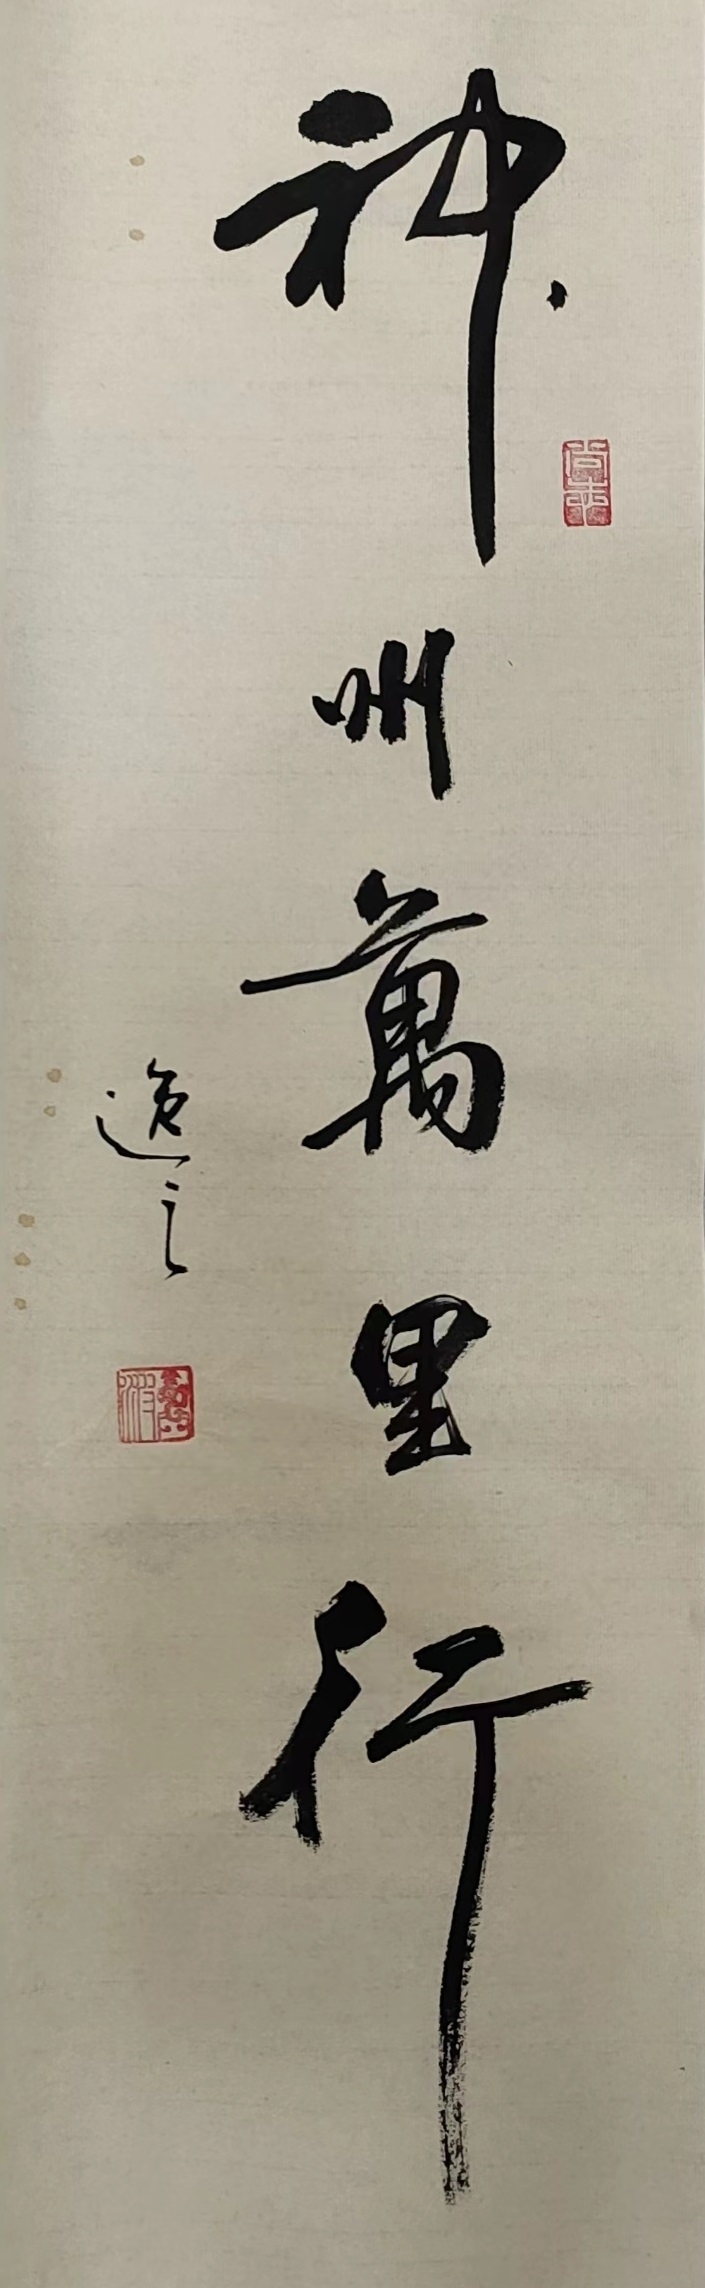 神州萬里行
逸之